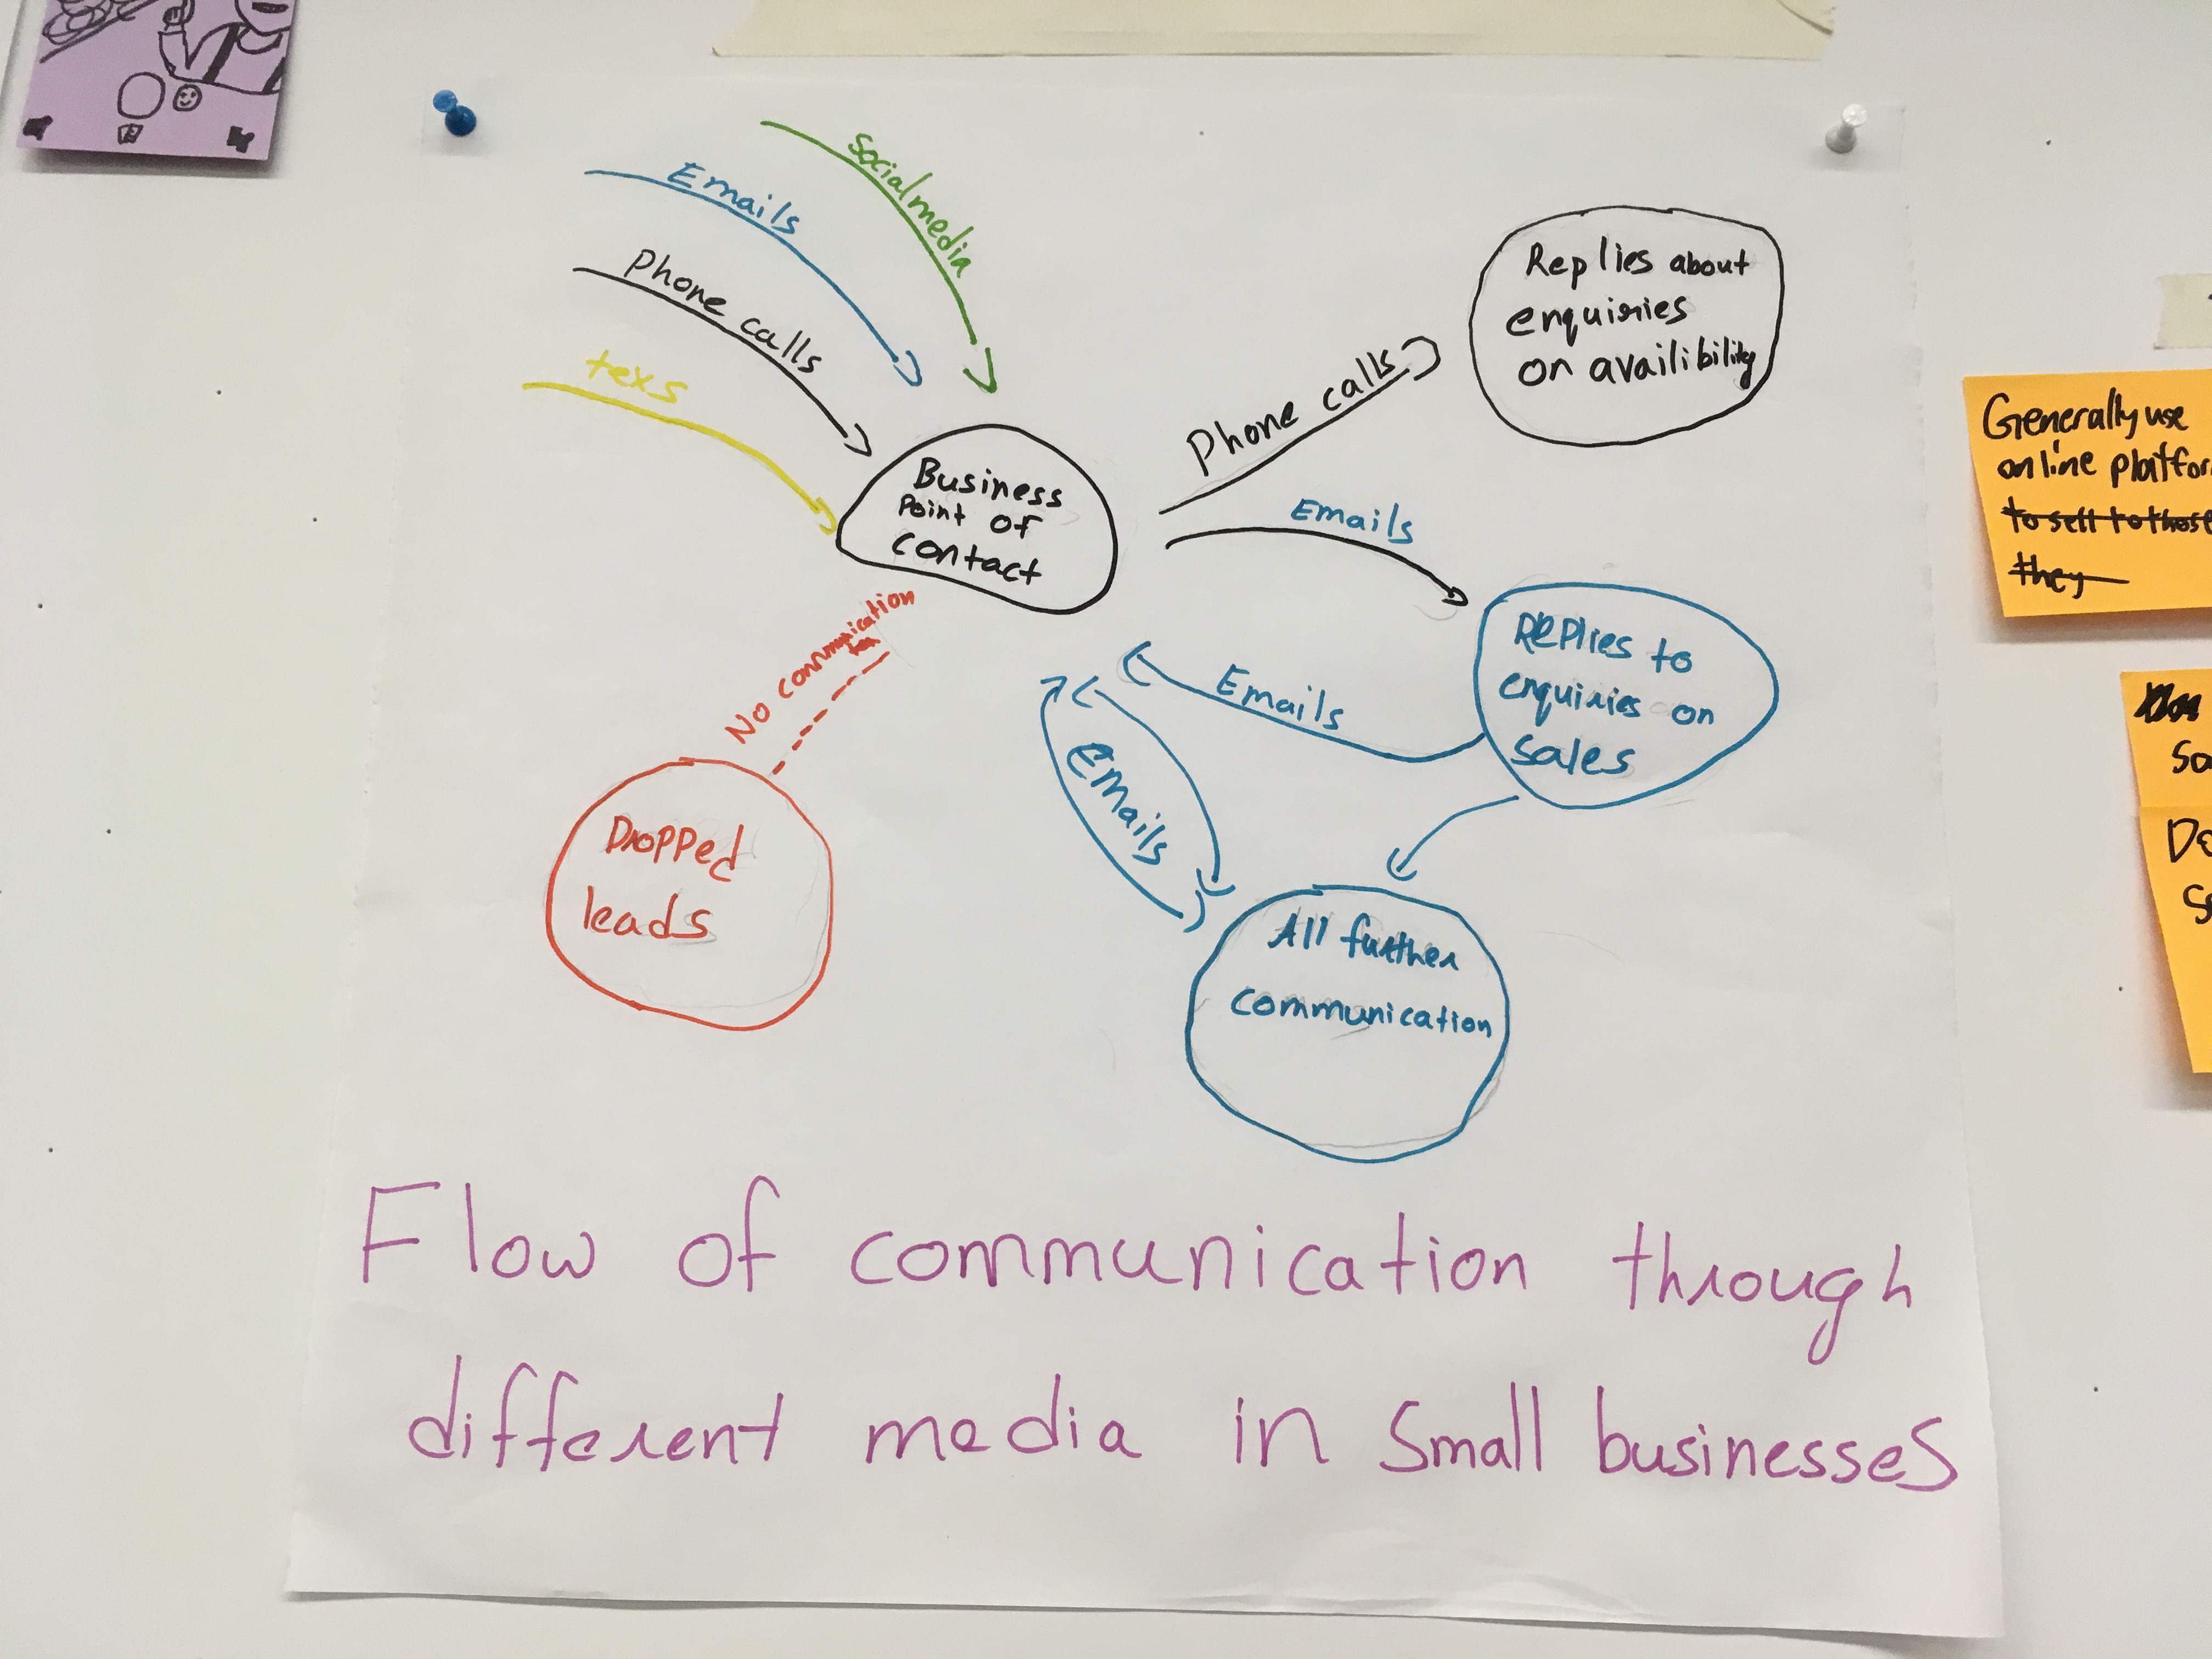 Social media
Emails
Phone calls
texs
Business
Point of
contact
Phone calls
Replies about
enquiries
on availibility
Emails
Replies to
enquiries on
sales
Emails
Emails
All further
communication
No communication
Dropped
leads
Flow of communication through
different media in Small businesses
Generally use
online platfor
to sell to those
they
So
De